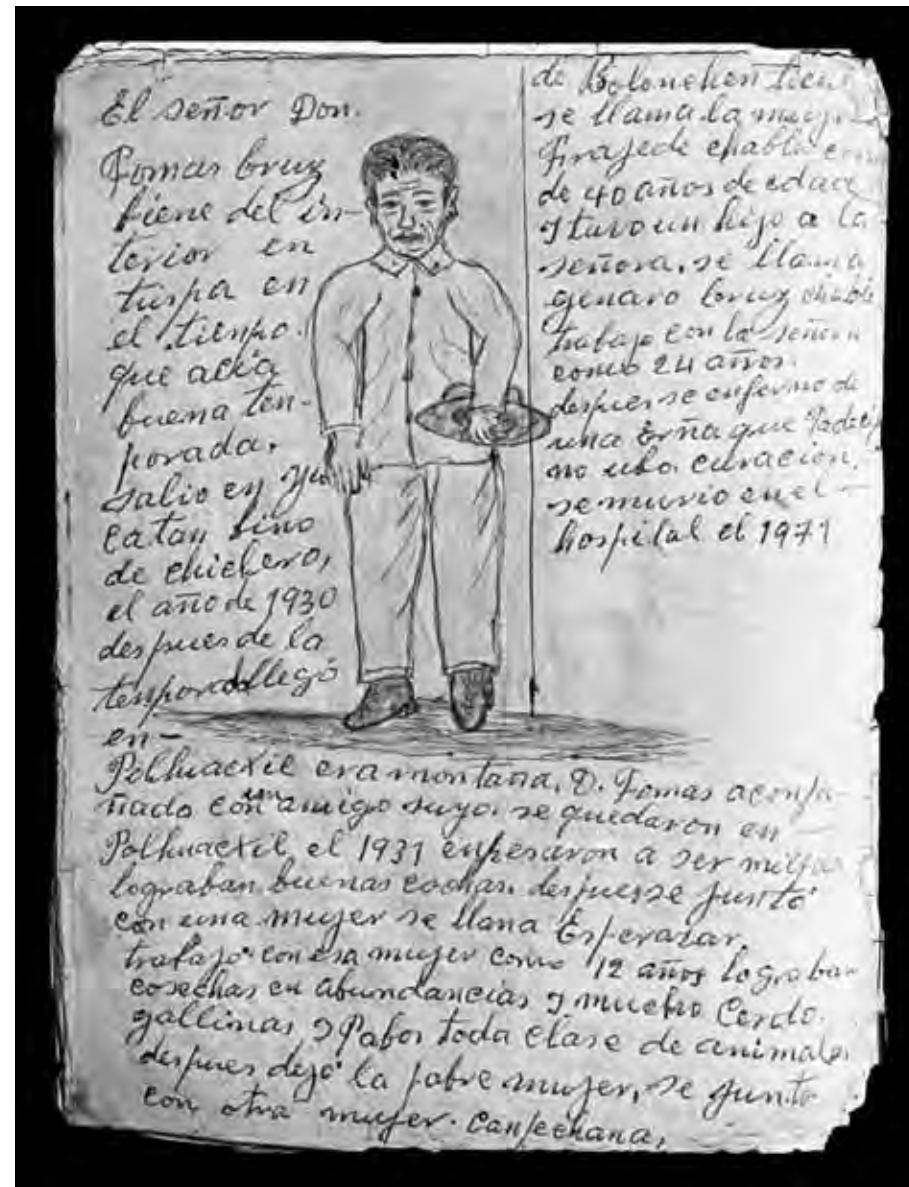 El señor Don.
Tomas Cruz
biene del in-
terior en
tuspa en
el tienpo.
que acia
buena ten-
porada.
salio en yu
catan bino
de chiclero,
el año de 1930
despues de la
tenporad llegó
en-
Polhuacxil era montaña, D. Tomas aconpa-
ñado con un amigo suyo. se quedaron en-
Polhuacxil el 1931 enpesaron a ser milpa
lograban buenas cochas. despues se juntó
con una mujer se llana Esperazar,
trabajo con esa mujer como 12 años lograban
cosechas en abundancias y mucho Cerdo.
gallinas y Pabos toda clase de animales
despues dejó la pobre mujer, se junto
con otra mujer. Canpechana,
de Bolonchen tiene
se llama la mujer
Prajede chable como
de 40 años de edad
y tuvo un hijo a la
señora, se llama
genaro Cruz chable
trabajo con la señora
como 24 años.
despues se enfermo de
una Erña que Padecia
no ubo. curacion,
se murio en el-
hospital el 1971